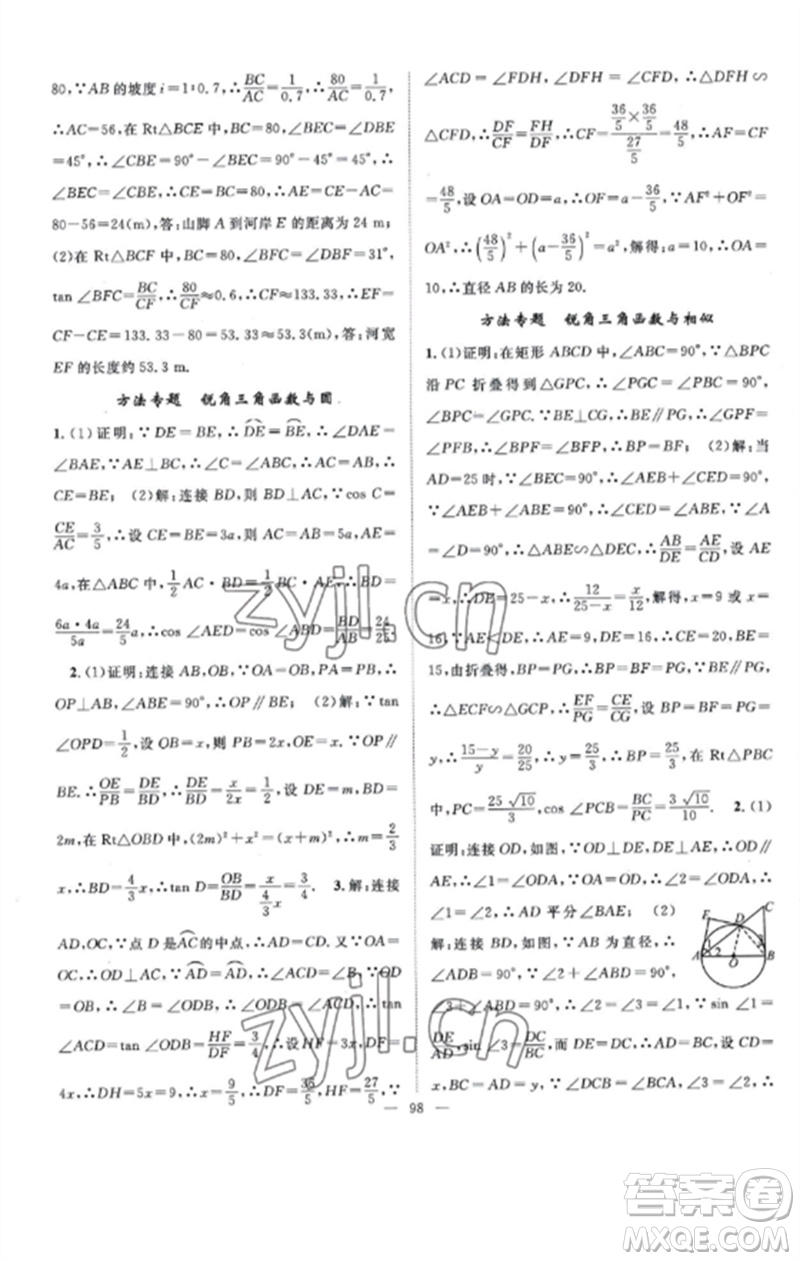 80,∵AB的坡度i=1∶0.7,∴BC/AC=1/0.7,∴80/AC=1/0.7,
∴AC=56,在Rt△BCE中,BC=80,∠BEC=∠DBE
=45°,∴∠CBE=90°-∠BEC=90°-45°=45°,
∴∠BEC=∠CBE,∴CE=BC=80,∴AE=CE-AC=
80-56=24(m),答:山脚A到河岸E的距离为24 m;
(2)在Rt△BCF中,BC=80,∠BFC=∠DBF=31°,
tan∠BFC=BC/CF,∴80/CF≈0.6,∴CF≈133.33,∴EF=
CF-CE=133.33-80=53.33≈53.3(m),答:河宽
EF的长度约53.3 m.
方法专题 锐角三角函数与圆
1.(1)证明:∵DE=BE,∴⌒DE=⌒BE,∴∠DAE=
∠BAE,∵AE⊥BC,∴∠ACE=∠AEB,∴AC=AB,∴
CE=BE; (2)解:连接BD,则BD⊥AC,∵cos C=
CE/AC=3/5,∴设CE=BE=3a,则AC=AB=5a,AE=
4a,在△ABC中,1/2AC·BD=1/2BC·AE,∴BD=
6a·4a/5a=24/5a,∴cos∠AED=cos∠ABD=BD/AB=24/25.
2.(1)证明:连接AB,OB,∵OA=OB,PA=PB,∴
OP⊥AB,∠ABE=90°,∴OP∥BE; (2)解:∵tan
∠OPD=1/2,设OB=x,则PB=2x,易得OE=x,∵OP∥
BE.∴OE/PB=DE/BD,∴DE/BD=x/2x=1/2,设DE=m,∴BD=
2m,在Rt△OBD中,(2m)²+x²=(x+m)²,∴m=2/3
x,∴BD=4/3x,∴tan D=OB/BD=x/(4/3x)=3/4. 3.解:连接
AD,OC,∵点D是⌒AC的中点,∴AD=CD.又∵OA=
OC,∴OD⊥AC,∵⌒AD=⌒CD,∴∠ACD=∠B,∵OD
=OB,∴∠B=∠ODB,∴∠ACD=∠ODB,∴tan
∠ACD=tan∠ODB=HF/DF=3/4,∴设HF=3x,DF=
4x,∴DH=5x=9,∴x=9/5,∴DF=36/5,HF=27/5,∵
∠ACD=∠FDH,∠DFH=∠CFD,∴△DFH∽
△CFD,∴DF/CF=FH/DF,∴CF=(36/5×36/5)/(27/5)=48/5,∴AF=CF
=48/5,设OA=OD=a,∴OF=a-36/5,∵AF²+OF²=
OA²,∴(48/5)²+(a-36/5)²=a²,解得:a=10,∴OA=
10,∴直径AB的长为20.
方法专题 锐角三角函数与相似
1.(1)证明:在矩形ABCD中,∠ABC=90°,∵△BPC
沿PC折叠得到△GPC,∴∠PGC=∠PBC=90°,
∠BPC=∠GPC,∵BE⊥CG,∴BE∥PG,∴∠GPF=
∠PFB,∴∠BPF=∠BFP,∴BP=BF; (2)解:当
AD=25时,∵∠BEC=90°,∴∠AEB+∠CED=90°,
∵∠AEB+∠ABE=90°,∴∠CED=∠ABE,∵∠A
=∠D=90°,∴△ABE∽△DEC,∴AB/DE=AE/CD,设AE
=x,∴DE=25-x,∴12/(25-x)=x/12,解得,x=9或x=
16,∵AE<DE,∴AE=9,DE=16,∴CE=20,BE=
15,由折叠得,BP=PG,∴BP=BF=PG,∵BE∥PG,
∴△ECF∽△GCP,∴EF/PG=CE/CG,设BP=BF=PG=
y,∴(15-y)/y=20/25,∴y=25/3,∴BP=25/3,在Rt△PBC
中,PC=25√10/3,cos∠PCB=BC/PC=3√10/10. 2.(1)
证明:连接OD,如图,DE⊥OD,DE⊥AE,∴OD∥
AE,∴∠1=∠ODA,∵OA=OD,∴∠2=∠ODA,
∴∠1=∠2,∴AD平分∠BAE; (2)
解:连接BD,如图,∵AB为直径,∴
∠ADB=90°,∵∠2+∠ABD=90°,
∠3+∠ABD=90°,∴∠2=∠3,∵sin∠1=
DE/AD,sin∠3=DC/BC,而DE=DC,∴AD=BC,设CD=
x,BC=AD=y,∵∠DCB=∠BCA,∠3=∠2,∴
E D C
1 2 3
A O B
— 98 —
zyjl.cn
zyjl.cn
答案圈
MXQE.COM